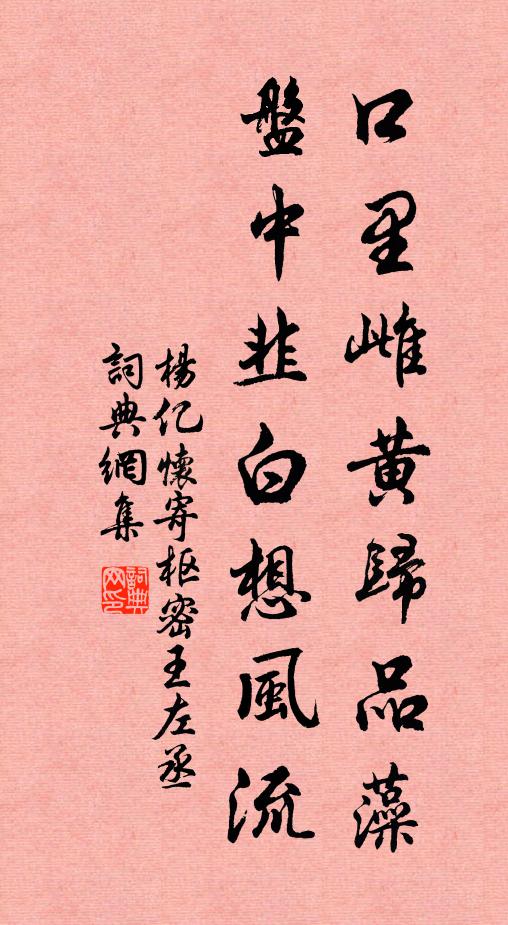 口里雌黄歸品藻
盤中韭白想風流
楊亿懷寄枢密王左丞
詞典網集
詞典网印